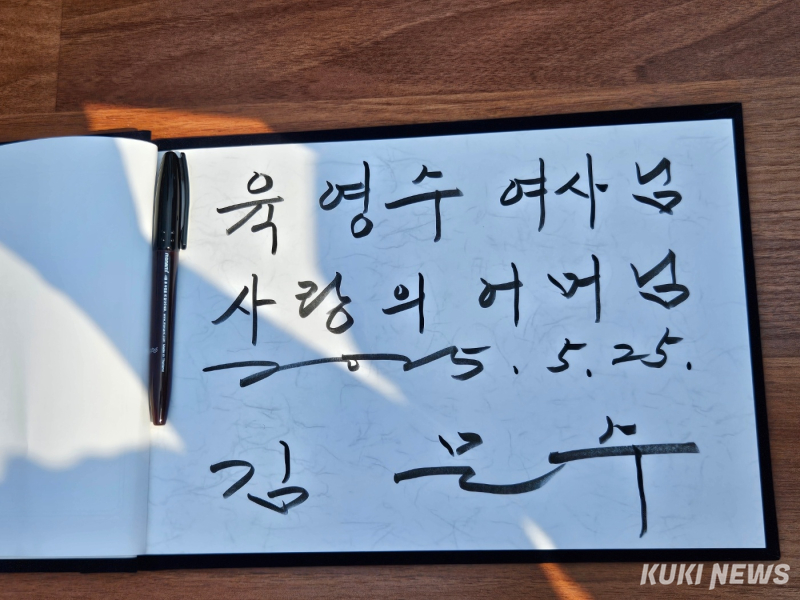 육영수 여사님
사랑의 어머님
2025. 5. 25.
김문수
KUKI NEWS